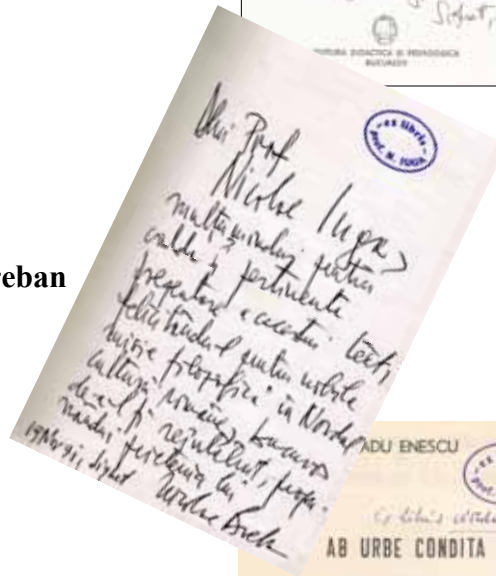 Sighet,
EDITURA DIDACTICĂ ȘI PEDAGOGICĂ
BUCUREȘTI
Dlui Prof
Nicolae Iuga,
mulțumindu-i pentru
calda și pertinenta
prezentare a acestui text,
felicitându-l pentru nobila
misie filozofică în Nordul
culturii române, bucuros
de a-l fi reîntâlnit,
19 Mai 91, Sighet
ex libris
prof. N. IUGA
reban
ADU ENESCU
Ex libris
AB URBE CONDITA